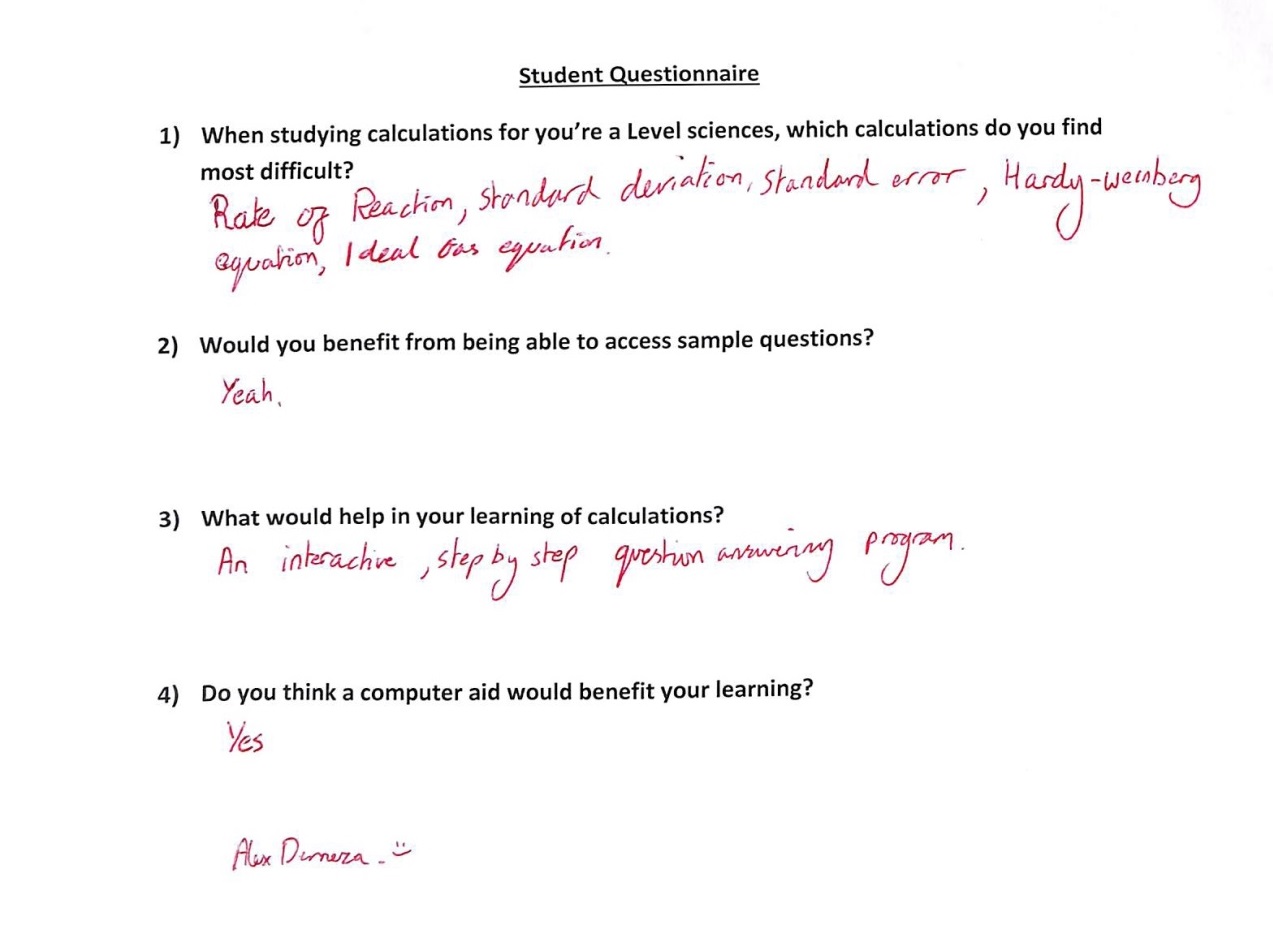 Student Questionnaire
1) When studying calculations for you're a Level sciences, which calculations do you find
most difficult?
Rate of Reaction, standard deviation, standard error, Hardy-weinberg
equation, Ideal Gas equation.
2) Would you benefit from being able to access sample questions?
Yeah.
3) What would help in your learning of calculations?
An interactive, step by step question answering program.
4) Do you think a computer aid would benefit your learning?
Yes
Alex - :)